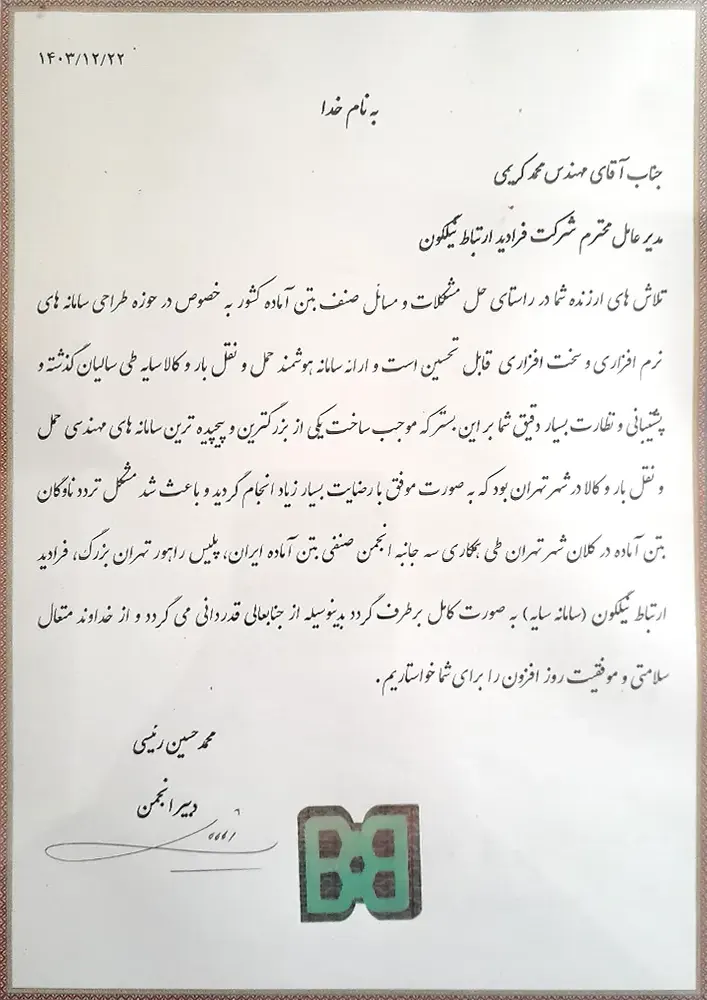 ۱۴۰۳/۱۲/۲۲
به نام خدا
جناب آقای مهندس محمد کریمی
مدیر عامل محترم شرکت فرادید ارتباط نیلگون
تلاش های ارزنده شما در راستای حل مشکلات و مسائل صنف بتن آماده کشور به خصوص در حوزه طراحی سامانه های
نرم افزاری و سخت افزاری قابل تحسین است و ارائه سامانه هوشمند حمل و نقل بار و کالا سایه طی سالیان گذشته و
پشتیبانی و نظارت بسیار دقیق شما بر این بستر که موجب ساخت یکی از بزرگترین و پیچیده ترین سامانه های مهندسی حمل
و نقل بار و کالا در شهر تهران بود که به صورت موفق با رضایت بسیار زیاد انجام گردید و باعث شد مشکل تردد ناوگان
بتن آماده در کلان شهر تهران طی همکاری سه جانبه انجمن صنفی بتن آماده ایران، پلیس راهور تهران بزرگ، فرادید
ارتباط نیلگون (سامانه سایه) به صورت کامل برطرف گردد بدینوسیله از جنابعالی قدردانی می گردد و از خداوند متعال
سلامتی و موفقیت روز افزون را برای شما خواستاریم.
محمد حسین رئیسی
دبیر انجمن